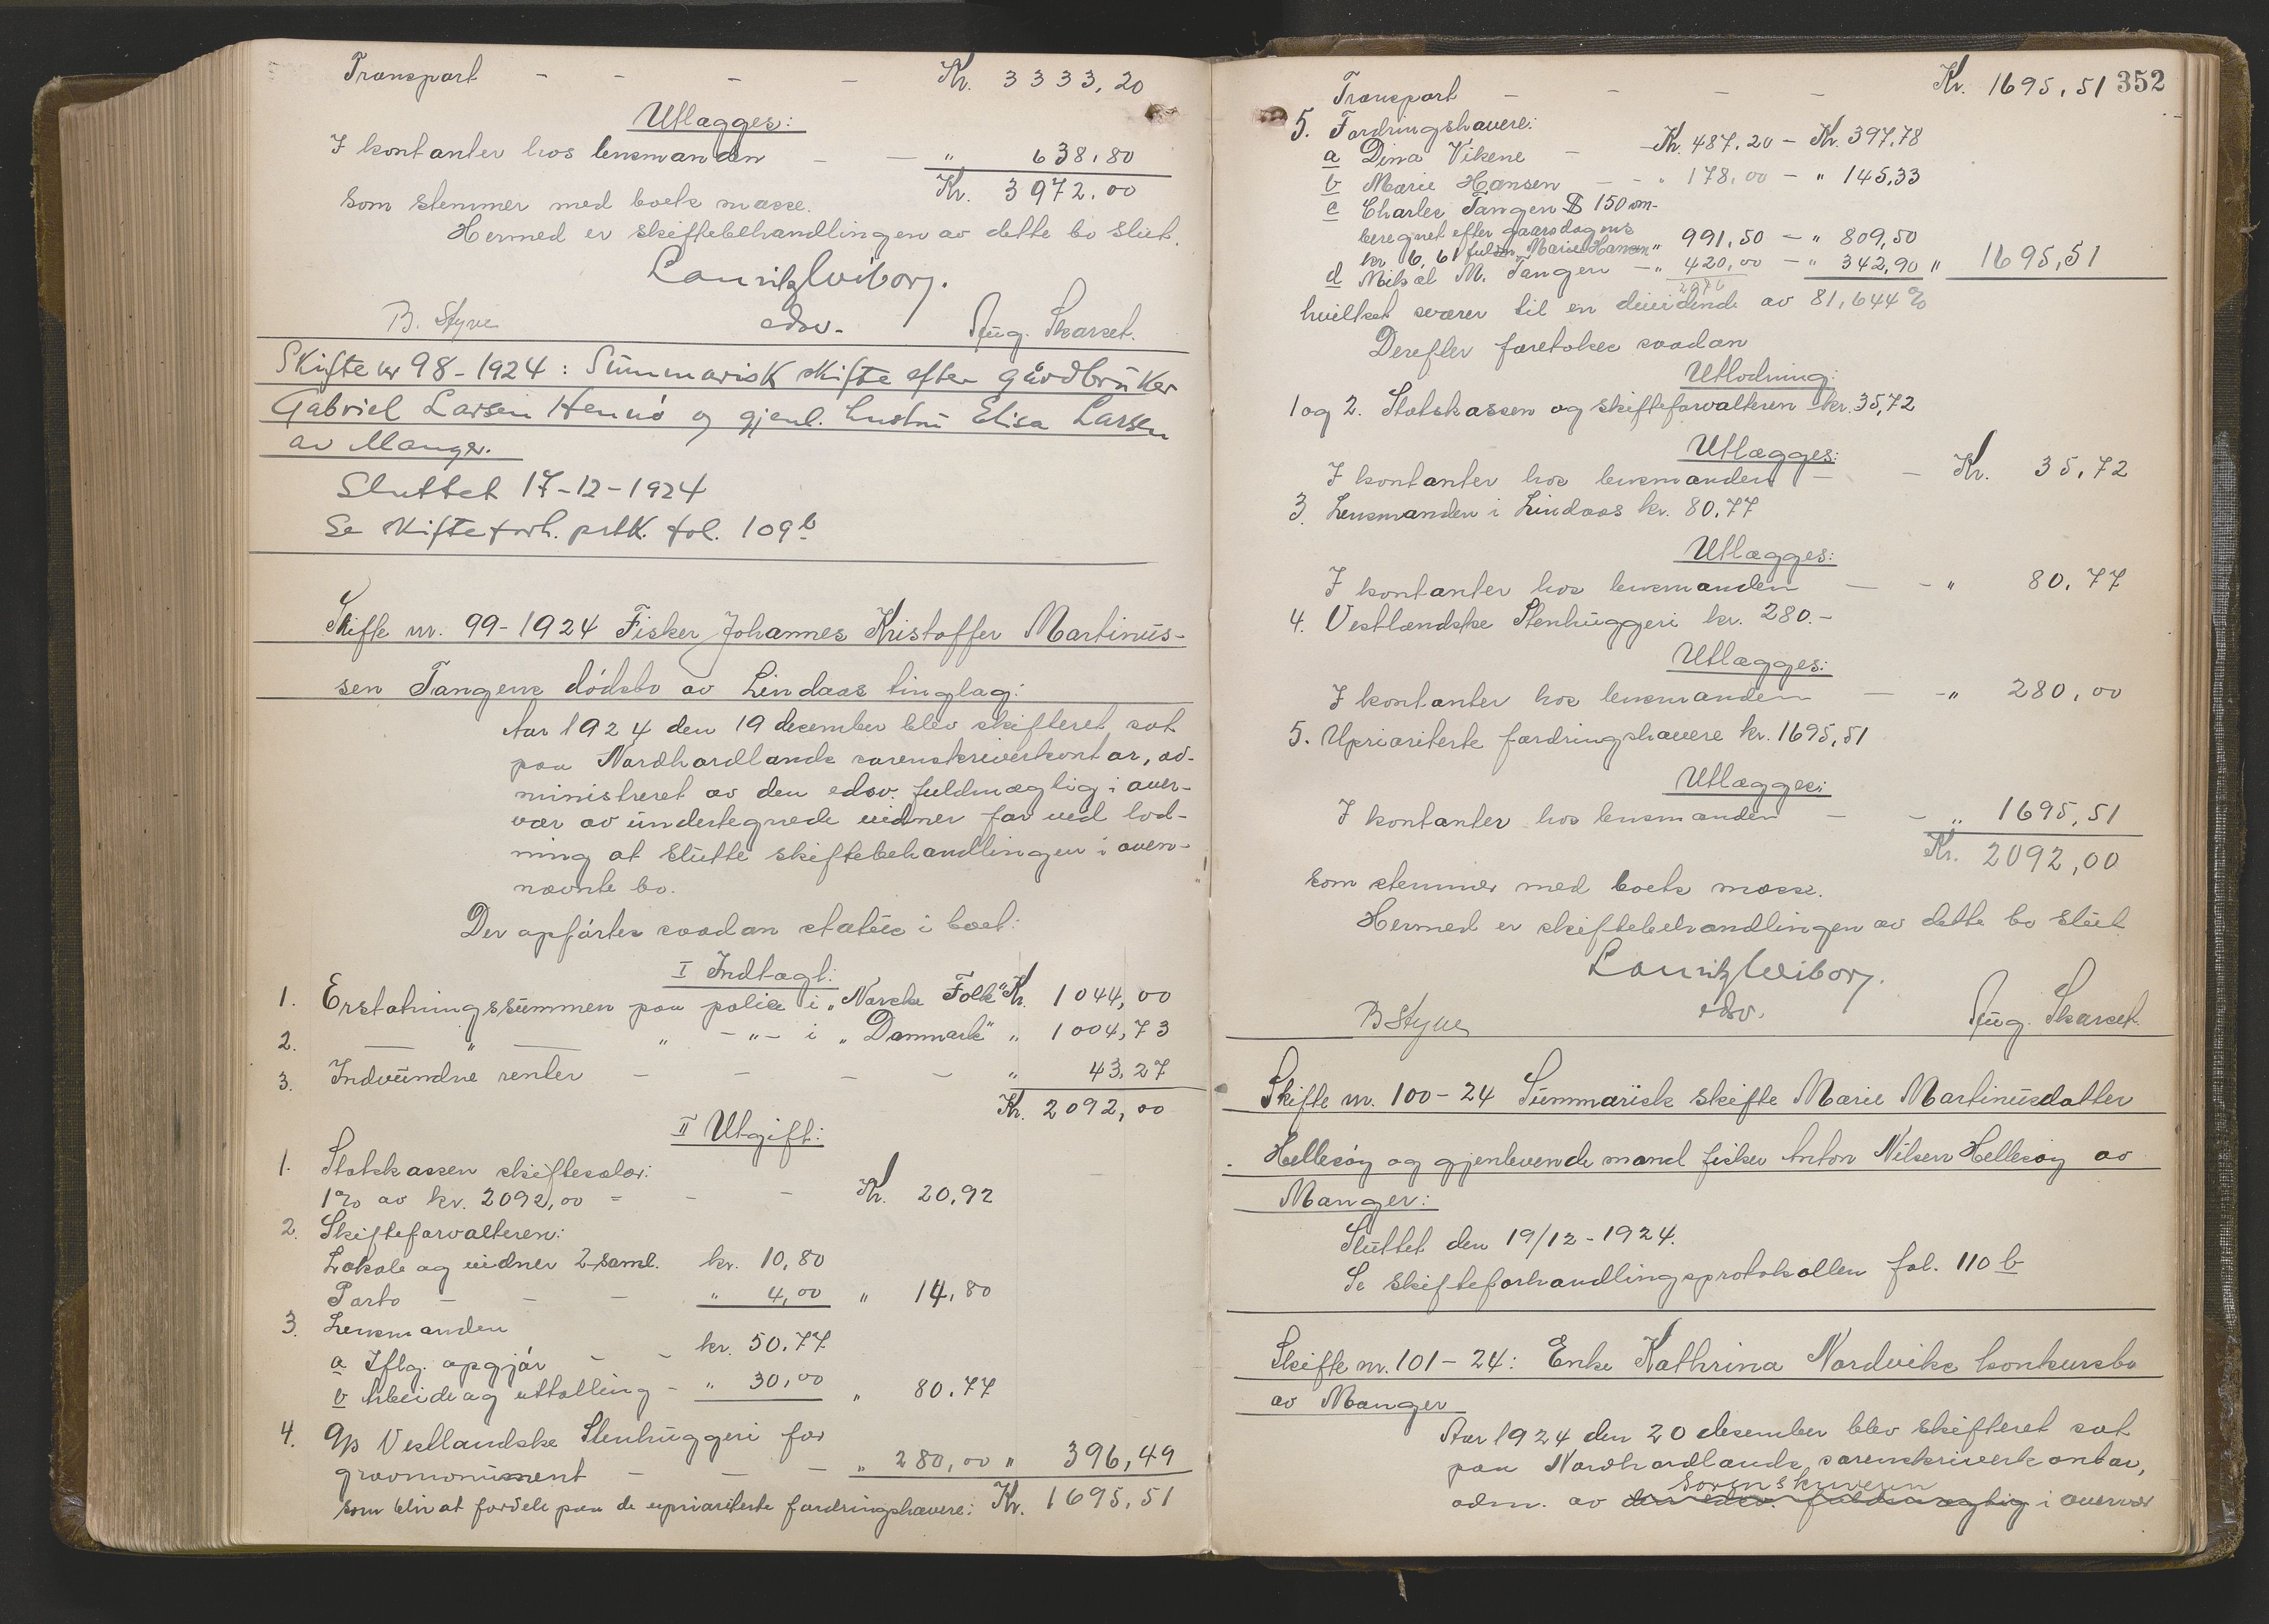 Transport - - - - Kr. 3333,20
Utlægges:
I kontanter hos lensmanden - - " 638,80
Kr. 3972,00
som stemmer med boets masse.
Hermed er skiftebehandlingen av dette bo slut.
Lauritz Wiborg.
edsv.
B. Styve
Aug. Skarset.
Skifte nr 98-1924: Summarisk skifte efter gårdbruker
Gabriel Larsen Hennø og gjenl. hustru Elisa Larsen
av Manger.
Sluttet 17-12-1924
Se skifteforh. prtk. fol. 109 b
Skifte nr. 99-1924 Fisker Johannes Kristoffer Martinus-
sen Tangens dødsbo av Lindaas tinglag:
Aar 1924 den 19 desember blev skifteret sat
paa Nordhordlands sorenskriverkontor, ad-
ministreret av den edsv. fuldmægtig i over-
vær av undertegnede vidner for ved lod-
ning at slutte skiftebehandlingen i oven-
nævnte bo.
Der opførtes saadan status i boet:
I Indtægt:
1. Erstatningssummen paa police i "Norske Folk" Kr. 1044,00
2. — " — " -"- i "Danmark" " 1004,73
3. Indvundne renter - - - - " 43,27
Kr. 2092,00
II Utgift:
1. Statskassen skiftesalær:
1% av kr. 2092,00 = - - Kr. 20,92
2. Skifteforvalteren:
Lokale og vidner 2 saml. kr. 10,80
Porto - - - " 4,00 " 14,80
3. Lensmanden
a Iflg. opgjør - - kr. 50,77
b Arbeide og uttælling - " 30,00 " 80,77
4. A/S Vestlandske Stenhuggeri for
gravmonument - - - " 280,00 " 396,49
som blir at fordele paa de uprioriterte fordringshavere: Kr. 1695,51
352
Transport - - - - Kr. 1695,51
5. Fordringshavere:
a Dina Vikene - - Kr. 487,20 - Kr. 397,78
b Marie Hansen - - " 178,00 - " 145,33
c Charles Tangen $ 150 om-
beregnet efter gaarsdagens
kr 6,61 Marie Hansen " 991,50 - " 809,50
d Mikal M. Tangen - " 420,00 - " 342,90 " 1695,51
2076
hvilket svarer til en dividende av 81,644 %
Derefter foretokes saadan
Utlodning:
1 og 2. Statskassen og skifteforvalteren kr. 35,72
Utlægges:
I kontanter hos lensmanden - - Kr. 35,72
3. Lensmanden i Lindaas kr. 80,77
Utlægges:
I kontanter hos lensmanden - - " 80,77
4. Vestlandske Stenhuggeri kr. 280.-
Utlægges:
I kontanter hos lensmanden - - " 280,00
5. Uprioriterte fordringshavere kr. 1695,51
Utlægges:
I kontanter hos lensmanden - - " 1695,51
Kr. 2092,00
som stemmer med boets masse.
Hermed er skiftebehandlingen av dette bo slut
Lauritz Wiborg.
edsv.
B Styve
Aug. Skarset.
Skifte nr. 100-24 Summarisk skifte Marie Martinusdatter
Hellesøy og gjenlevende mand fisker Anton Nilsen Hellesøy av
Manger:
Sluttet den 19/12-1924.
Se skifteforhandlingsprotokollen fol. 110 b
Skifte nr. 101-24: Enke Kathrina Nordviks konkursbo
av Manger
Aar 1924 den 20 desember blev skifteret sat
paa Nordhordlands sorenskriverkontor,
sorenskriveren
adm. av den edsv. fuldmægtig i overvær